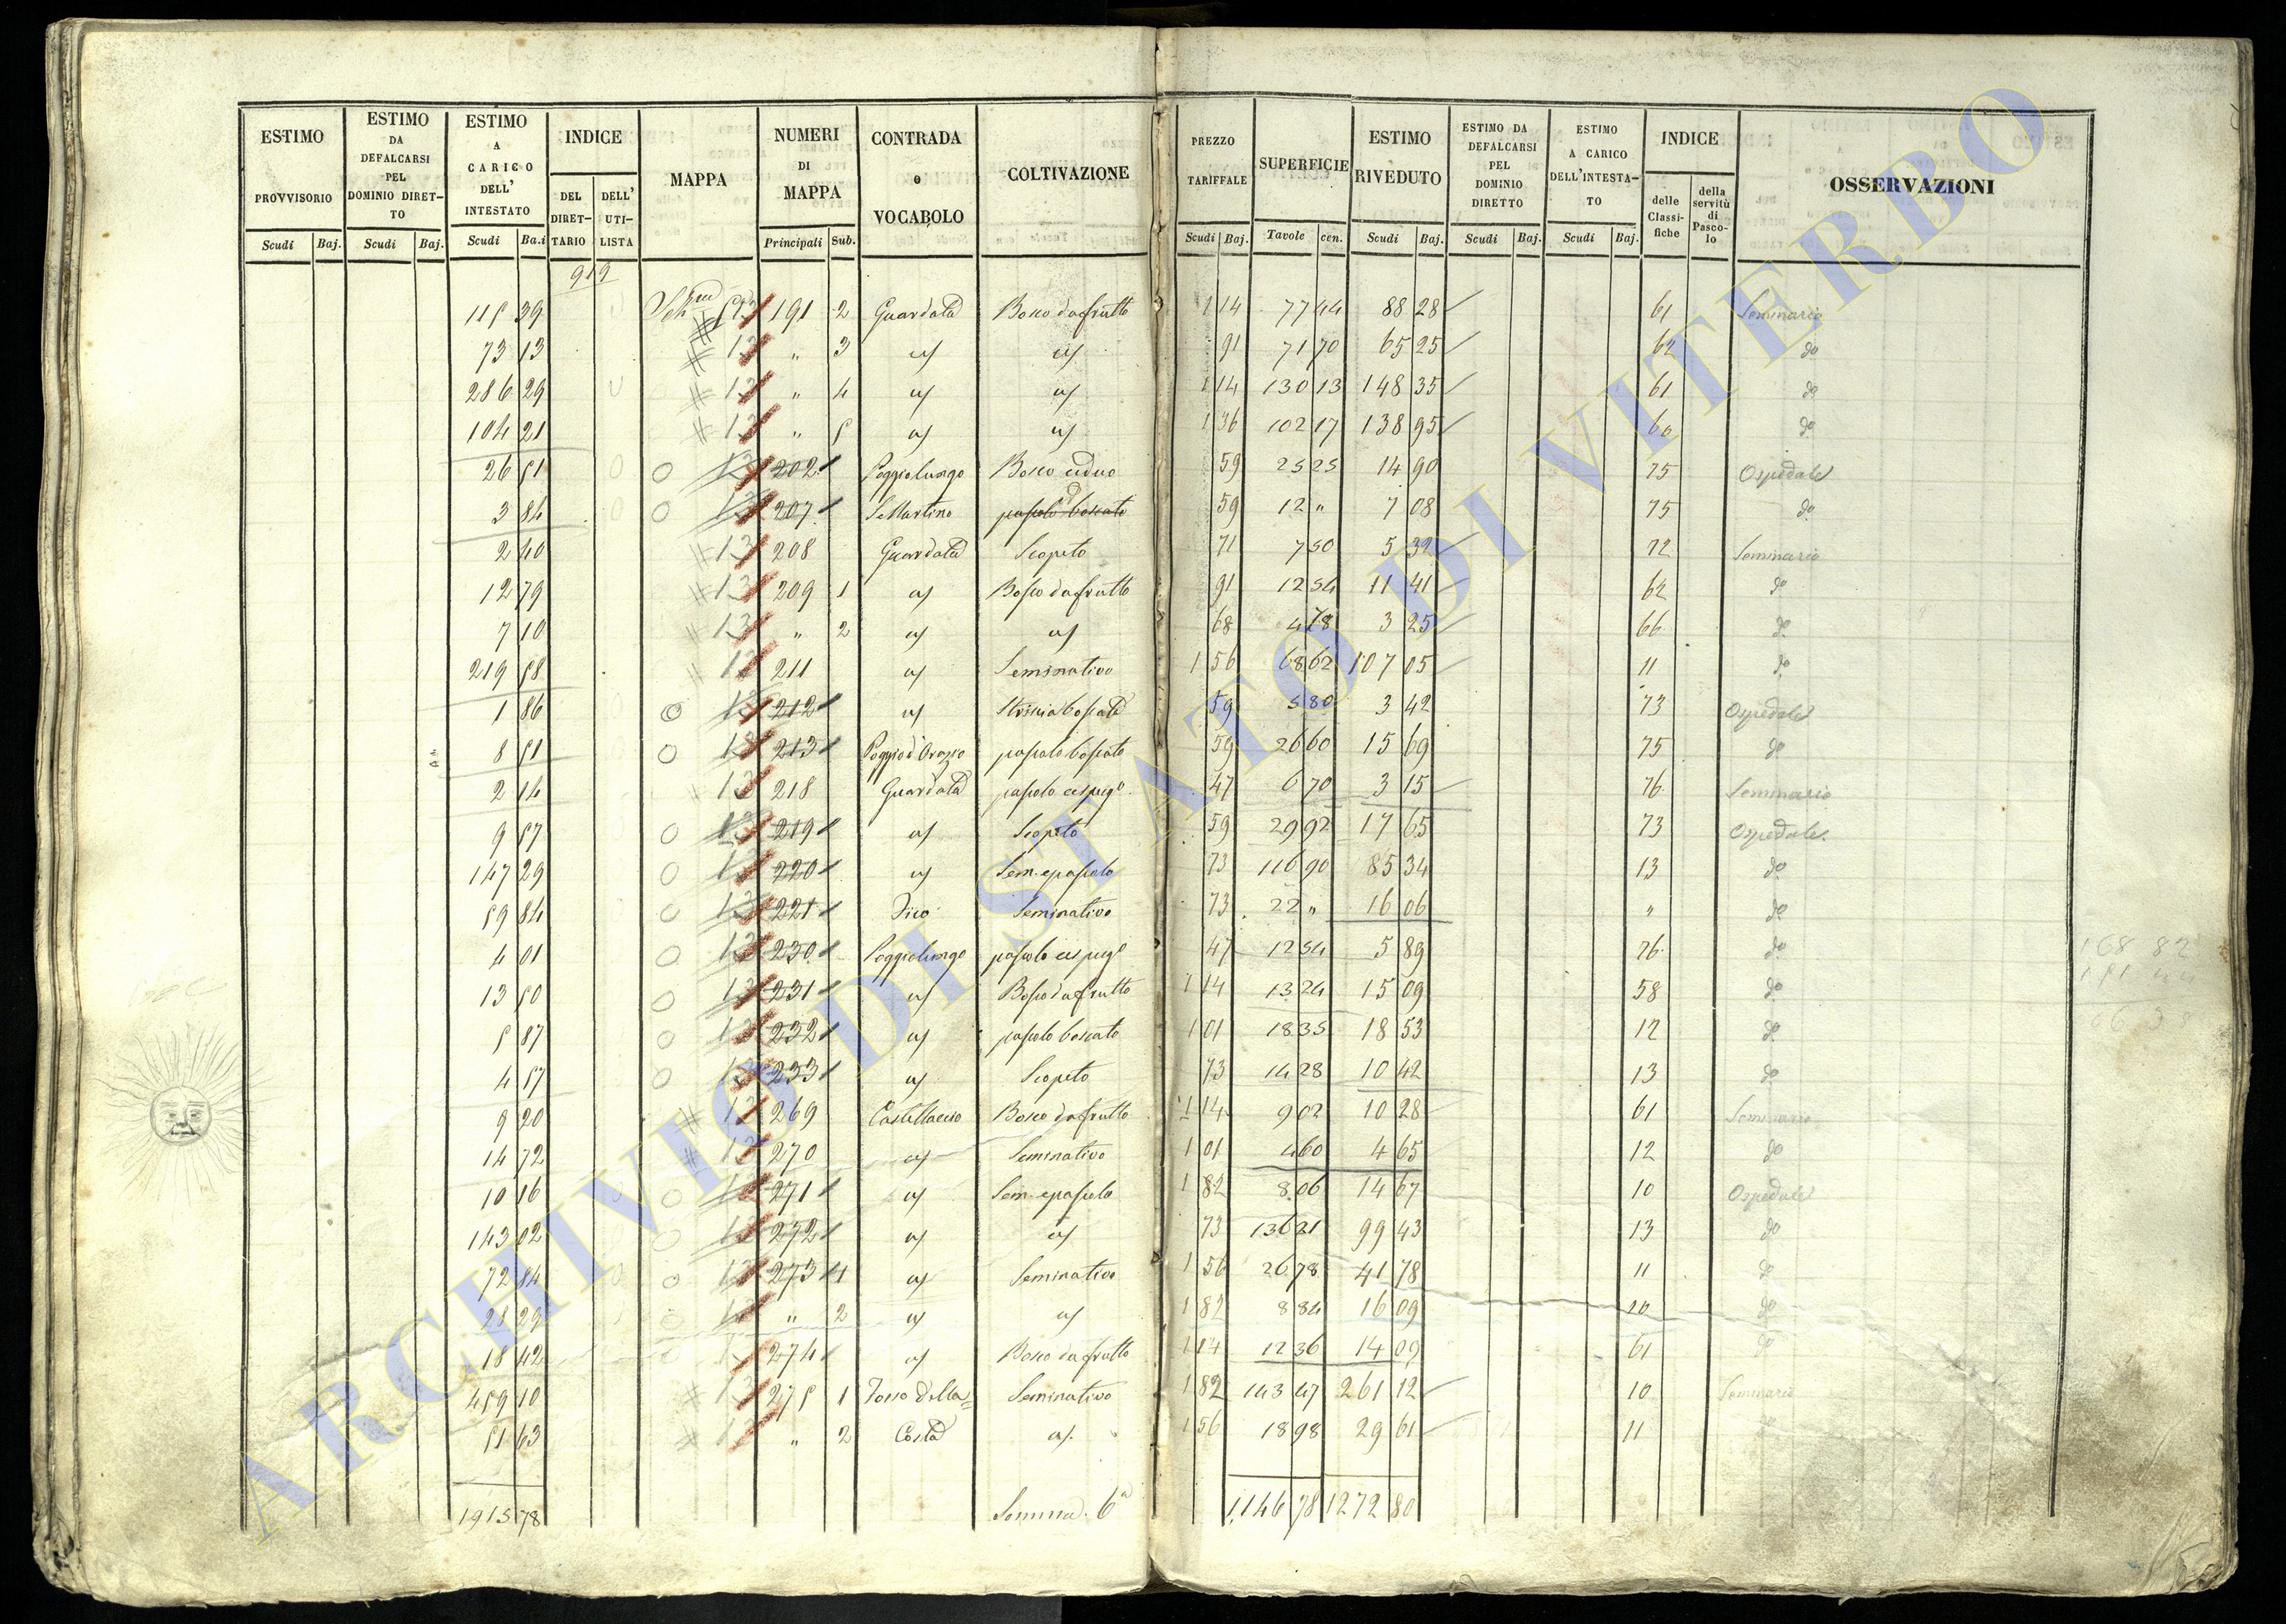 ESTIMO PROVVISORIO Scudi Baj.
ESTIMO DA DEFALCARSI PEL DOMINIO DIRETTO Scudi Baj.
ESTIMO A CARICO DELL' INTESTATO Scudi Ba.i
INDICE DEL DIRETTARIO DELL' UTILISTA
MAPPA
NUMERI DI MAPPA Principali Sub.
CONTRADA o VOCABOLO
COLTIVAZIONE
PREZZO TARIFFALE Scudi Baj.
SUPERFICIE Tavole cen.
ESTIMO RIVEDUTO Scudi Baj.
ESTIMO DA DEFALCARSI PEL DOMINIO DIRETTO Scudi Baj.
ESTIMO A CARICO DELL'INTESTATO Scudi Baj.
INDICE delle Classifiche della servitù di Pascolo
OSSERVAZIONI
919
115 39 13 191 2 Guardata Bosco da frutto 1 14 77 44 88 28 61 Seminario
73 13 13 " 3 a/ a/ 91 71 70 65 25 62 do
286 29 13 " 4 a/ a/ 1 14 130 13 148 35 61 do
104 21 13 " 5 a/ a/ 1 36 102 17 138 95 60 do
26 51 13 202 Poggiolungo Bosco ceduo 59 25 25 14 90 75 Ospedale
3 84 13 207 S. Martino pascolo boscato 59 12 " 7 08 75 do
2 40 13 208 Guardata Scopeto 71 7 50 5 32 72 Seminario
12 79 13 209 1 a/ Bosco da frutto 91 12 54 11 41 62 do
7 10 13 " 2 a/ a/ 68 4 78 3 25 66 do
219 58 13 211 a/ Seminativo 1 56 68 62 107 05 11 do
1 86 13 212 a/ Striscia boscata 59 5 80 3 42 73 Ospedale
8 51 13 213 Poggio d'Orazio pascolo boscato 59 26 60 15 69 75 do
2 14 13 218 Guardata pascolo cespug.o 47 6 70 3 15 76 Seminario
9 57 13 219 a/ Scopeto 59 29 92 17 65 73 Ospedale
147 29 13 220 a/ Sem. e pascolo 73 116 90 85 34 13 do
59 84 13 221 Fico Seminativo 73 22 " 16 06 " do
4 01 13 230 Poggiolungo pascolo cespug.o 47 12 54 5 89 76 do
168 82
13 50 13 231 a/ Bosco da frutto 1 14 13 24 15 09 58 do
5 87 13 232 a/ pascolo boscato 1 01 18 35 18 53 12 do
4 57 13 233 a/ Scopeto 73 14 28 10 42 13 do
9 20 13 269 Castellaccio Bosco da frutto 1 14 9 02 10 28 61 Seminario
14 72 13 270 a/ Seminativo 1 01 4 60 4 65 12 do
10 16 13 271 a/ Sem. e pascolo 1 82 8 06 14 67 10 Ospedale
143 02 13 272 a/ a/ 73 136 21 99 43 13 do
72 84 13 273 1 a/ Seminativo 1 56 26 78 41 78 11 do
28 29 13 " 2 a/ a/ 1 82 8 84 16 09 10 do
18 42 13 274 a/ Bosco da frutto 1 14 12 36 14 09 61 do
459 10 13 275 1 Fosso della Seminativo 1 82 143 47 261 12 10 Seminario
51 63 13 " 2 Costa a/. 1 56 18 98 29 61 11
1915 78 Somma 6a 1,146 78 1272 80
ARCHIVIO DI STATO DI VITERBO